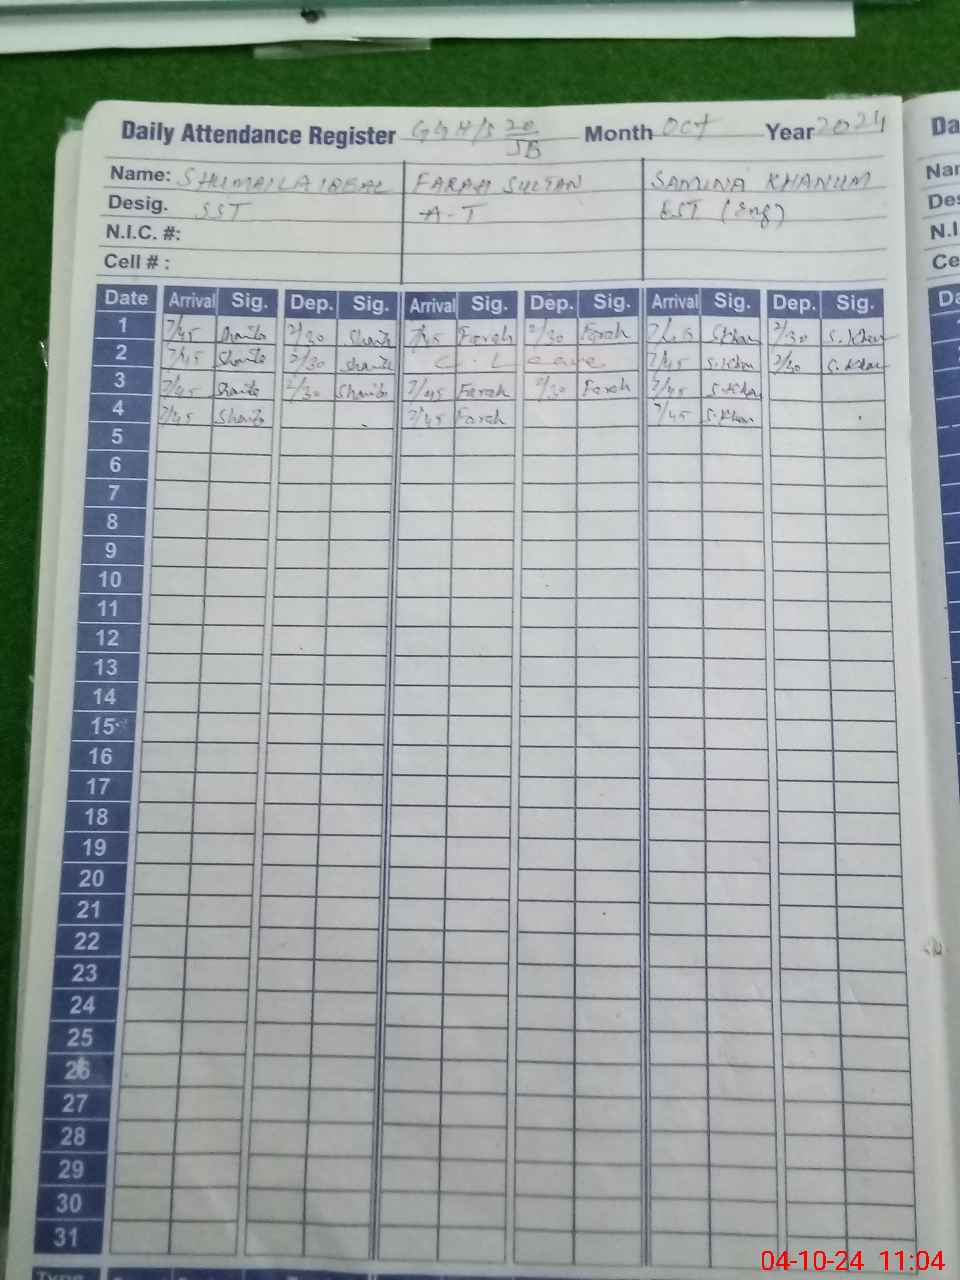 Daily Attendance Register GGH/S 20/JB Month Oct Year 2024 Da
Name: SHUMAILA IQBAL FARAH SULTAN SAMINA KHANUM Nar
Desig. SST A-T EST (Eng) Des
N.I.C. #: N.I.
Cell # : Ce
Date Arrival Sig. Dep. Sig. Arrival Sig. Dep. Sig. Arrival Sig. Dep. Sig. Da
1 7/45 2/30 7/45 Farah 2/30 Farah 7/45 S.Khan 2/30 S.Khan
2 7/45 2/30 C. Leave 7/45 S.Khan 2/30 S.Khan
3 7/45 2/30 7/45 Farah 2/30 Farah 7/45 S.Khan
4 7/45 7/45 Farah 7/45 S.Khan
5
6
7
8
9
10
11
12
13
14
15
16
17
18
19
20
21
22
23
24
25
26
27
28
29
30
31
Type
04-10-24 11:04